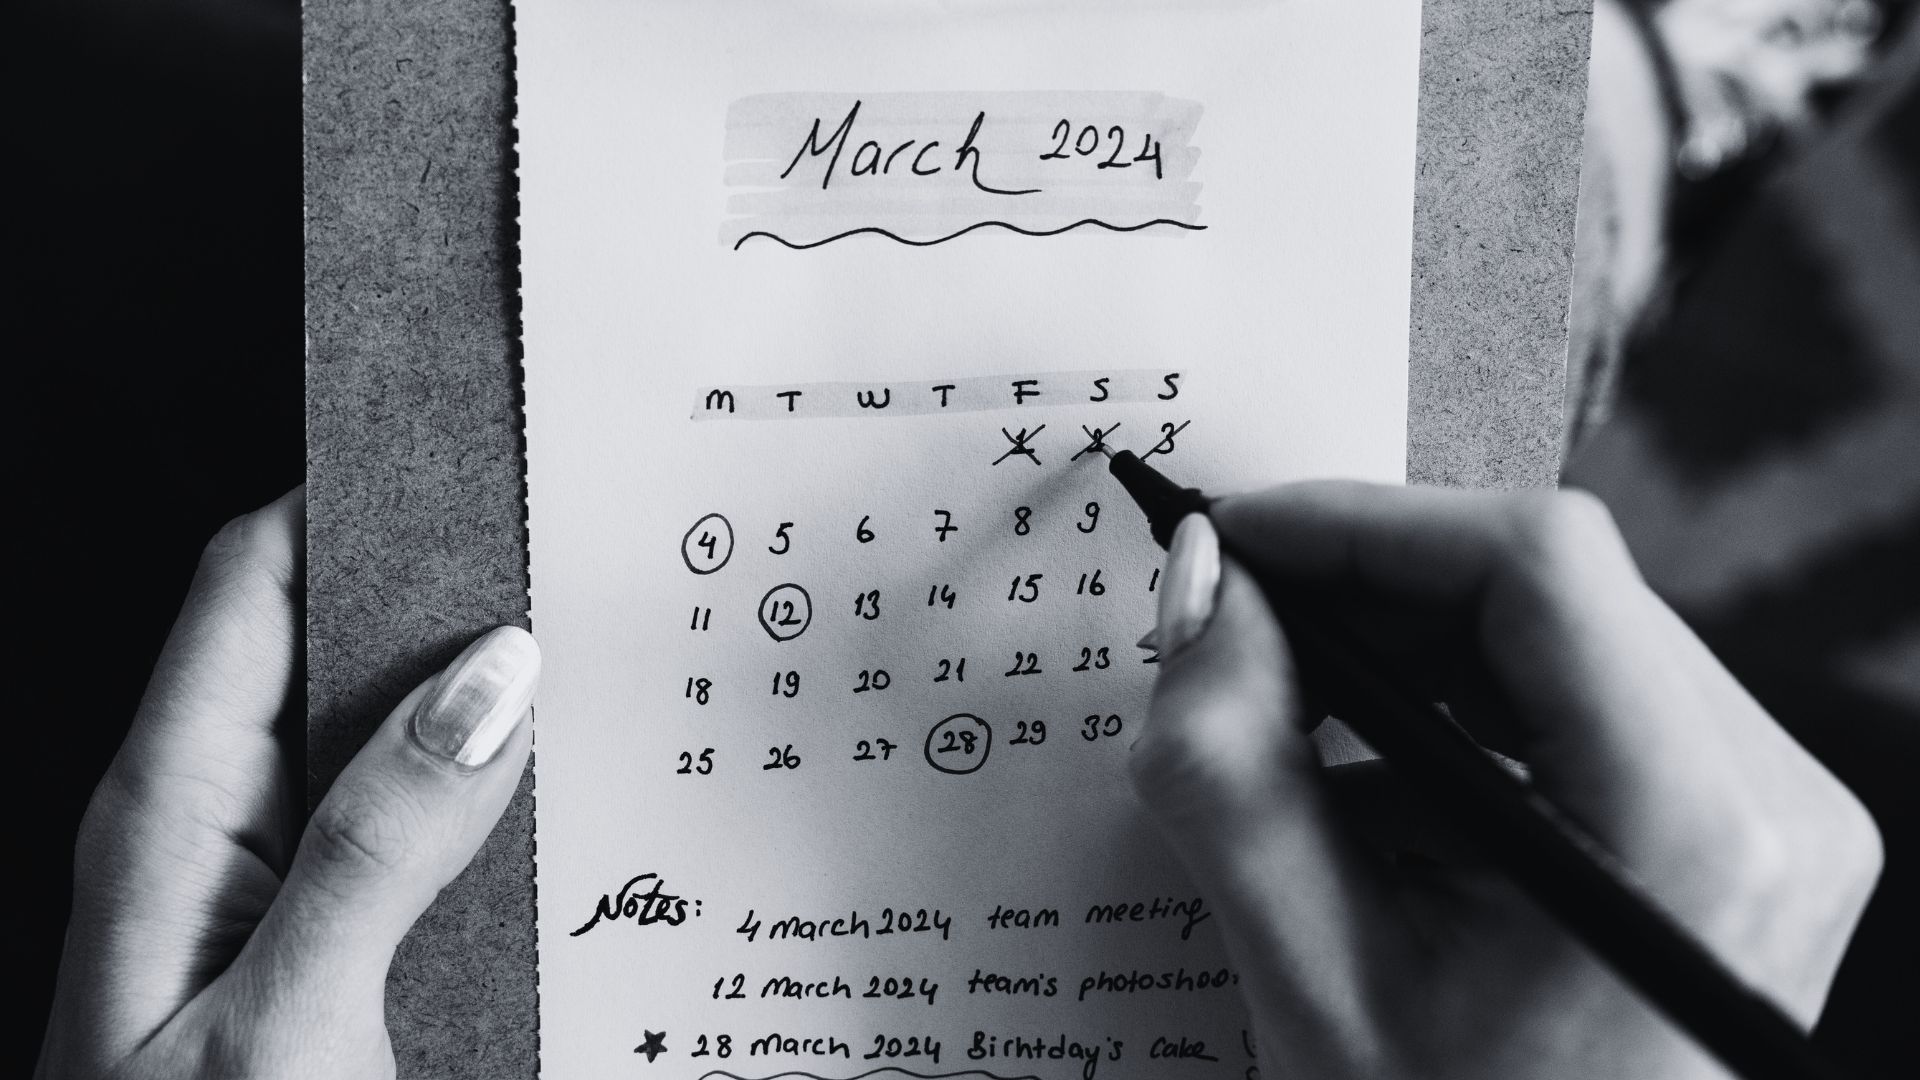 March 2024
M T W T F S S
1 2 3
4 5 6 7 8 9
11 12 13 14 15 16
18 19 20 21 22 23
25 26 27 28 29 30
Notes: 4 march 2024 team meeting
12 march 2024 team's
28 march 2024 Birhtday's cake